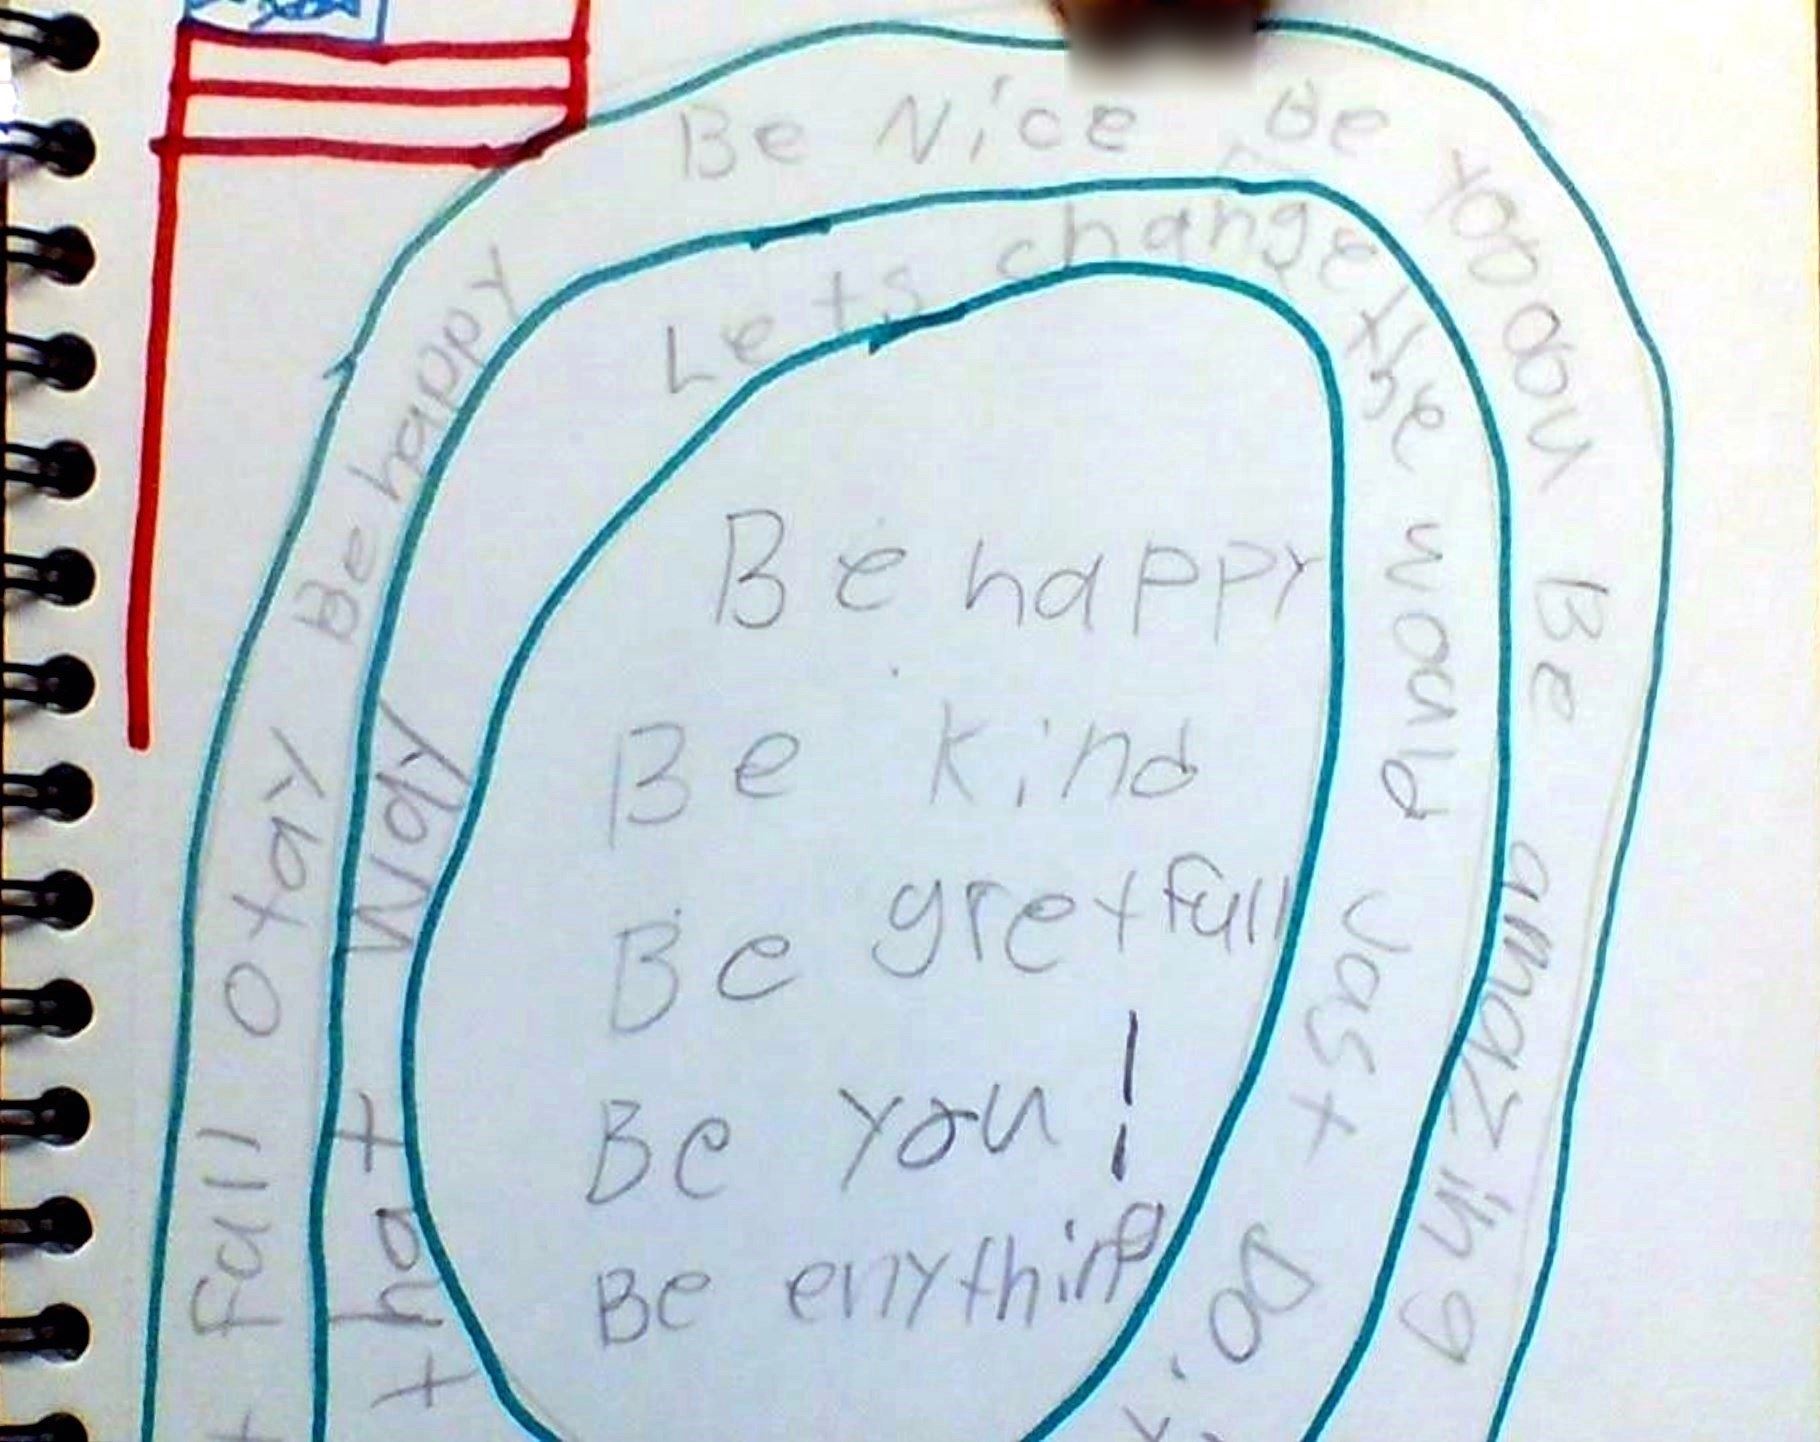 Be happy Be Nice Be yooou Be amazing
fall otay
Lets change the would Just Do i
that Way
Be happy
Be kind
Be gretfull
Be you!
Be enything